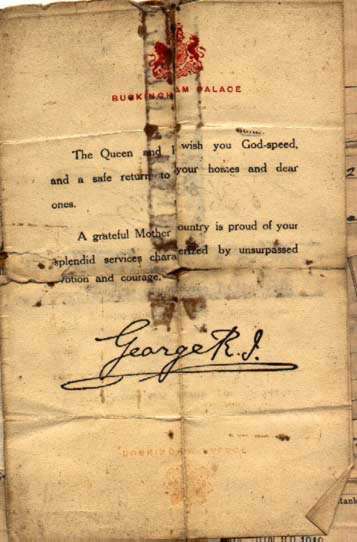 BUCKINGHAM PALACE
The Queen and I wish you God-speed,
and a safe return to your homes and dear
ones.
A grateful Mother Country is proud of your
splendid services characterized by unsurpassed
devotion and courage.
George R.I.